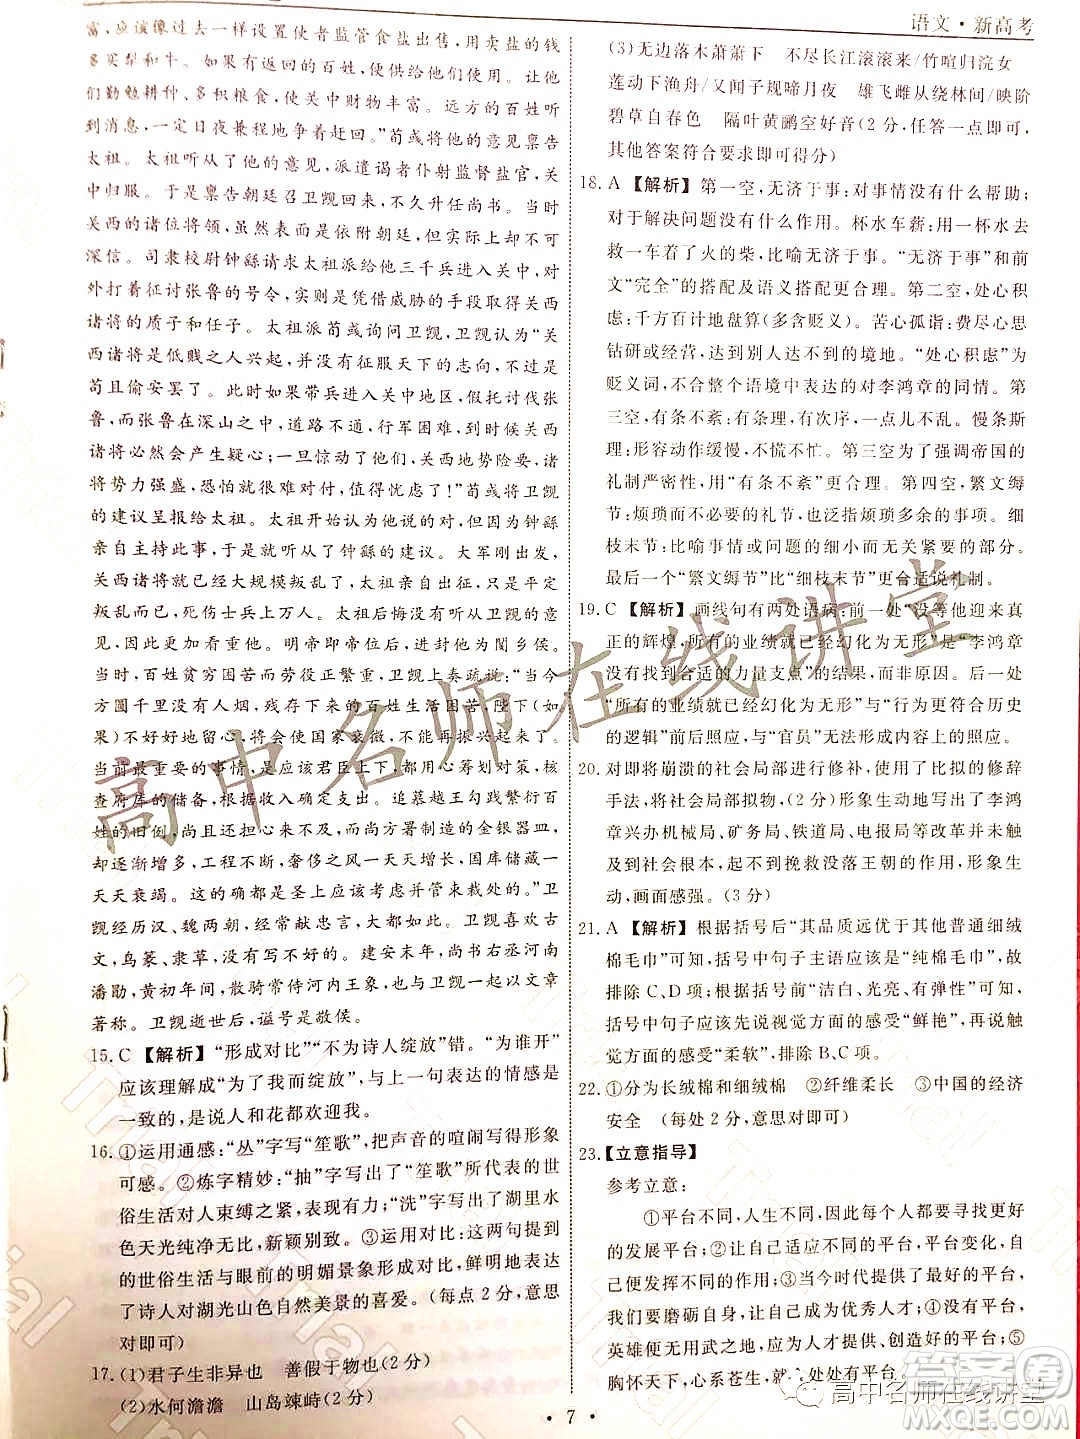 语文·新高考
富，应该像过去一样设置使者监管食盐出售，用卖盐的钱
多买犁和牛。如果有返回的百姓，就供给他们。让他
们勤勉耕种、多积粮食，使关中财物丰富。远方的百姓听
到消息，一定日夜兼程地争着赶回。”荀彧将他的意见禀告
太祖。太祖听从了他的意见，派遣谒者仆射监督盐官，关
中归服。于是禀告朝廷召卫觊回来，不久升任尚书。当时
关西的诸位将领，外表上虽归顺朝廷，但实际上却不可
深信。司隶校尉钟繇请求太祖派给他三千兵进入关中，
对外打着征讨张鲁的号令，实则是凭借威胁的手段取得关西
诸将的质子和任子。太祖派荀彧询问卫觊，卫觊认为“关
西诸将是平庸的低贱之人兴起，并没有征服天下的志向，
苟且偷安罢了。如果带兵进入关中地区，假托讨伐张
鲁，而张鲁在深山之中，道路不通，行军艰难，到时候关西
诸将必然会产生疑心；一旦相互惊动，关西地势险要，诸
将势力强盛，恐怕就很难对付，值得忧虑！”荀彧将卫觊
的建议呈报给太祖。太祖开始认为他说的对，但因为钟繇
亲自主持此事，于是就听从了钟繇的建议。大军刚出发，
关西诸将就已经大规模叛乱了，太祖亲自讨伐，只是平定
叛乱而已，死伤士兵上万人。太祖后悔没有听从卫觊的建议，
因此更加看重他。明帝即帝位后，进封他为阌乡侯。
当时，百姓贫穷而劳役正繁重，卫觊上奏疏说：“当今
方圆千里没有人烟，残存下来的百姓生活困苦，陛下(如
果)不好好地留心，将会使国家衰微，不能再振兴起来。
当前最重要的事情，是应该君臣上下，都用心筹划对策，核
查府库的储备，根据收入来确定支出。追慕越王勾践繁衍百
姓的旧例，还担心来不及，而尚方署制造的金银器皿，却
还渐渐增多，工程不断，奢侈之风一天天增长，国库储藏一
天天衰竭。这的确都是圣上应该考虑并管束裁减的。”卫
觊经历汉、魏两朝，经常献忠言，大概都像这样。卫觊喜欢古
文，鸟篆、隶草，没有不擅长的。建安末年，尚书右丞河南
潘勖，黄初年间，散骑常侍河内王象，也和卫觊一起以文章
著称。卫觊逝世后，谥号是敬侯。
15.C 【解析】“形成对比”“不为诗人绽放”错。“为谁开”
应该理解成“为了我而绽放”，与上一句表达的情感是
一致的，是说人和花都欢迎我。
16.①运用通感：“丛”字写“笙歌”，把声音的喧闹写得形象
可感。②炼字精妙：“抽”字写出了“笙歌”所代表的世
俗生活对人束缚之紧，用力；“洗”字写出了湖里水
色天光纯净无比，新颖别致。③运用对比，这两句提到
的世俗生活与眼前的明媚景象形成对比，鲜明地表达
了诗人对湖光山色自然美景的喜爱。(每点2分，意思
对即可)
17.(1)君子生非异也 善假于物也(2分)
(2)水何澹澹 山岛竦峙(2分)
(3)无边落木萧萧下 不尽长江滚滚来/竹喧归浣女
莲动下渔舟/又闻子规啼月夜 雄飞雌从绕林间/映阶
碧草自春色 隔叶黄鹂空好音(2分，任答一点即可，
其他答案符合要求即可得分)
18.A 【解析】第一空，无济于事：对事情没有什么帮助；
对于解决问题没有什么作用。杯水车薪：用一杯水去
救一车着了火的柴，比喻无济于事。“无济于事”和前
文“完全”的搭配及语义搭配更合理。第二空，处心积
虑：千方百计地盘算(多含贬义)。苦心孤诣：费尽心思
钻研或经营，达到别人达不到的境地。“处心积虑”为
贬义词，不符合整个语境中表达的对李鸿章的同情。第
三空，有条不紊：有条理，有次序，一点儿不乱。慢条斯
理：形容动作缓慢，不慌不忙。第三空为了强调帝国的
礼制严密性，用“有条不紊”更合适。第四空，繁文缛
节：烦琐而不必要的礼节，也泛指烦琐多余的事项。细
枝末节：比喻事情或问题的细小而无关紧要的部分。
最后一个“繁文缛节”比“细枝末节”更合适说礼制。
19.C 【解析】画线句有两处语病：前一处“没等他迎来真
正的辉煌，所有的业绩就已经幻化为无形”是“李鸿章
没有找到合适的力量支点”的结果，而非原因。后一处
“所有的业绩就已经幻化为无形”与“行为更符合历史
的逻辑”前后照应，与“官员”无法形成内容上的照应。
20.对即将崩溃的社会局部进行修补，使用了比拟的修辞
手法，将社会局部拟物，(2分)形象生动地写出了李鸿
章兴办机械局、矿务局、铁道局、电报局等改革并未触
及到社会根本，起不到挽救没落王朝的作用，形象生
动，画面感强。(3分)
21.A 【解析】根据括号后“其品质远优于其他普通细绒
棉毛巾”可知，括号中句子主语应该是“纯棉毛巾”，故
排除C、D项；根据括号前“洁白、光亮、有弹性”可知，
括号中句子应该先说视觉方面的感受“鲜艳”，再说触
觉方面的感受“柔软”，排除B项。故选A项。
22.①分为长绒棉和细绒棉 ②纤维柔长 ③中国的经济
安全 (每处2分，意思对即可)
23.【立意指导】
参考立意：
①平台不同，人生不同，因此每个人要寻找更好
的发展平台；②让自己适应不同的平台，在平台中
发展不同的能力；③当今时代提供了最好的平台，
我们要磨砺自己，成为优秀人才；④没有平台，
英雄便无用武之地，应为人才提供、创造好的平台；⑤
胸怀天下，心系苍生，就会处处有平台。
·7·
高中名师在线讲堂
高中名师在线讲堂
答案圈
MXQE.COM
Trial